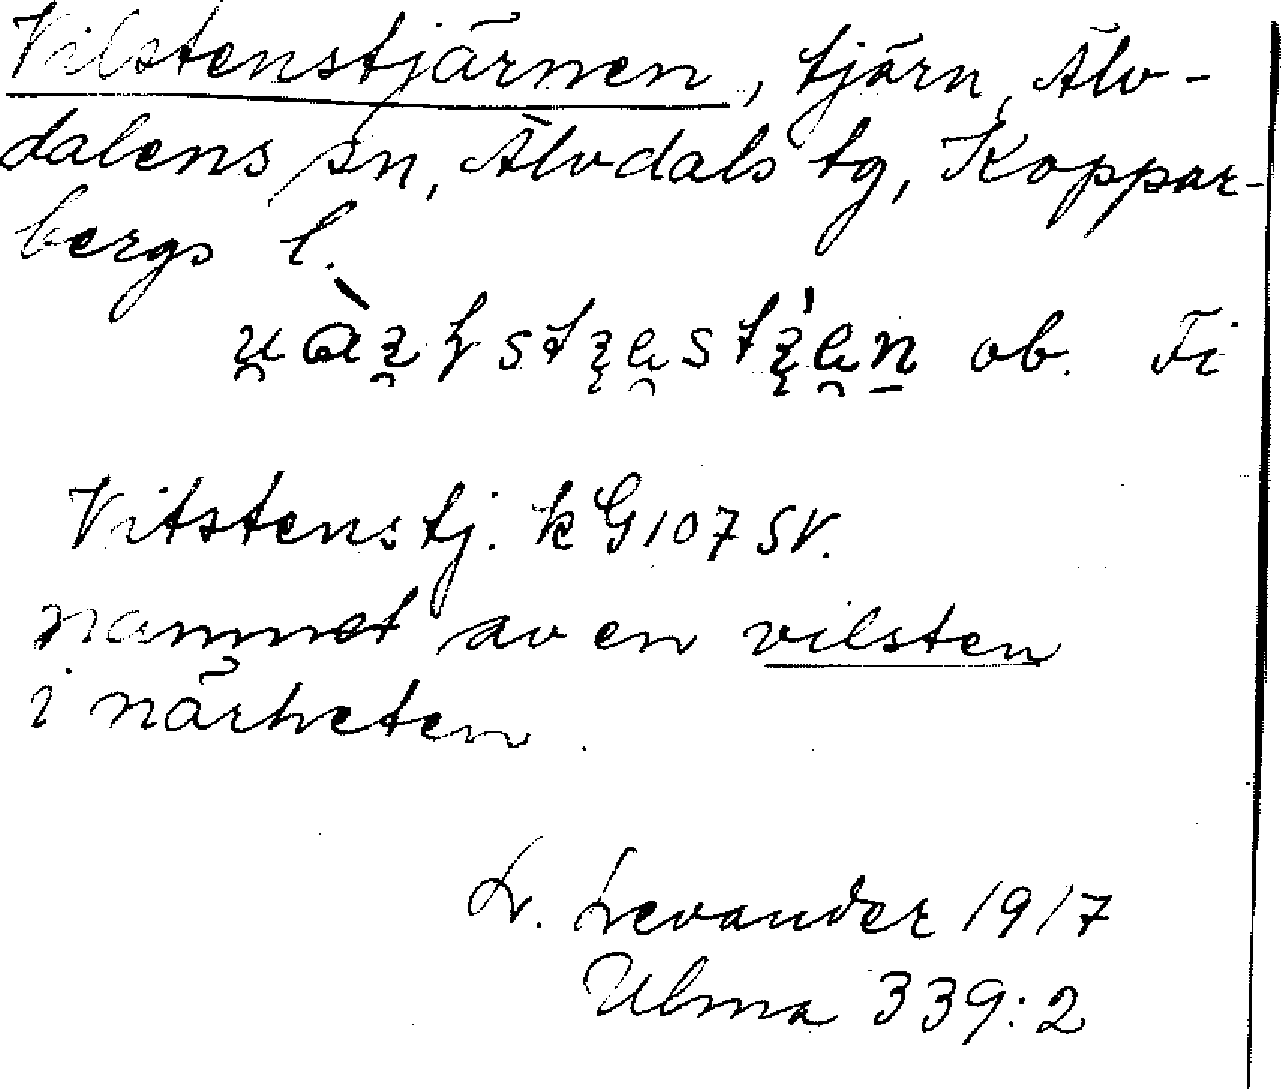 Vilstenstjärnen, tjärn, Älv-
dalens sn, Älvdals tg, Koppar-
bergs l.
ob. Fi
Vitstenstj. kG107 SV.
namnet av en vilsten
i närheten.
L. Levander 1917
Ulma 339:2